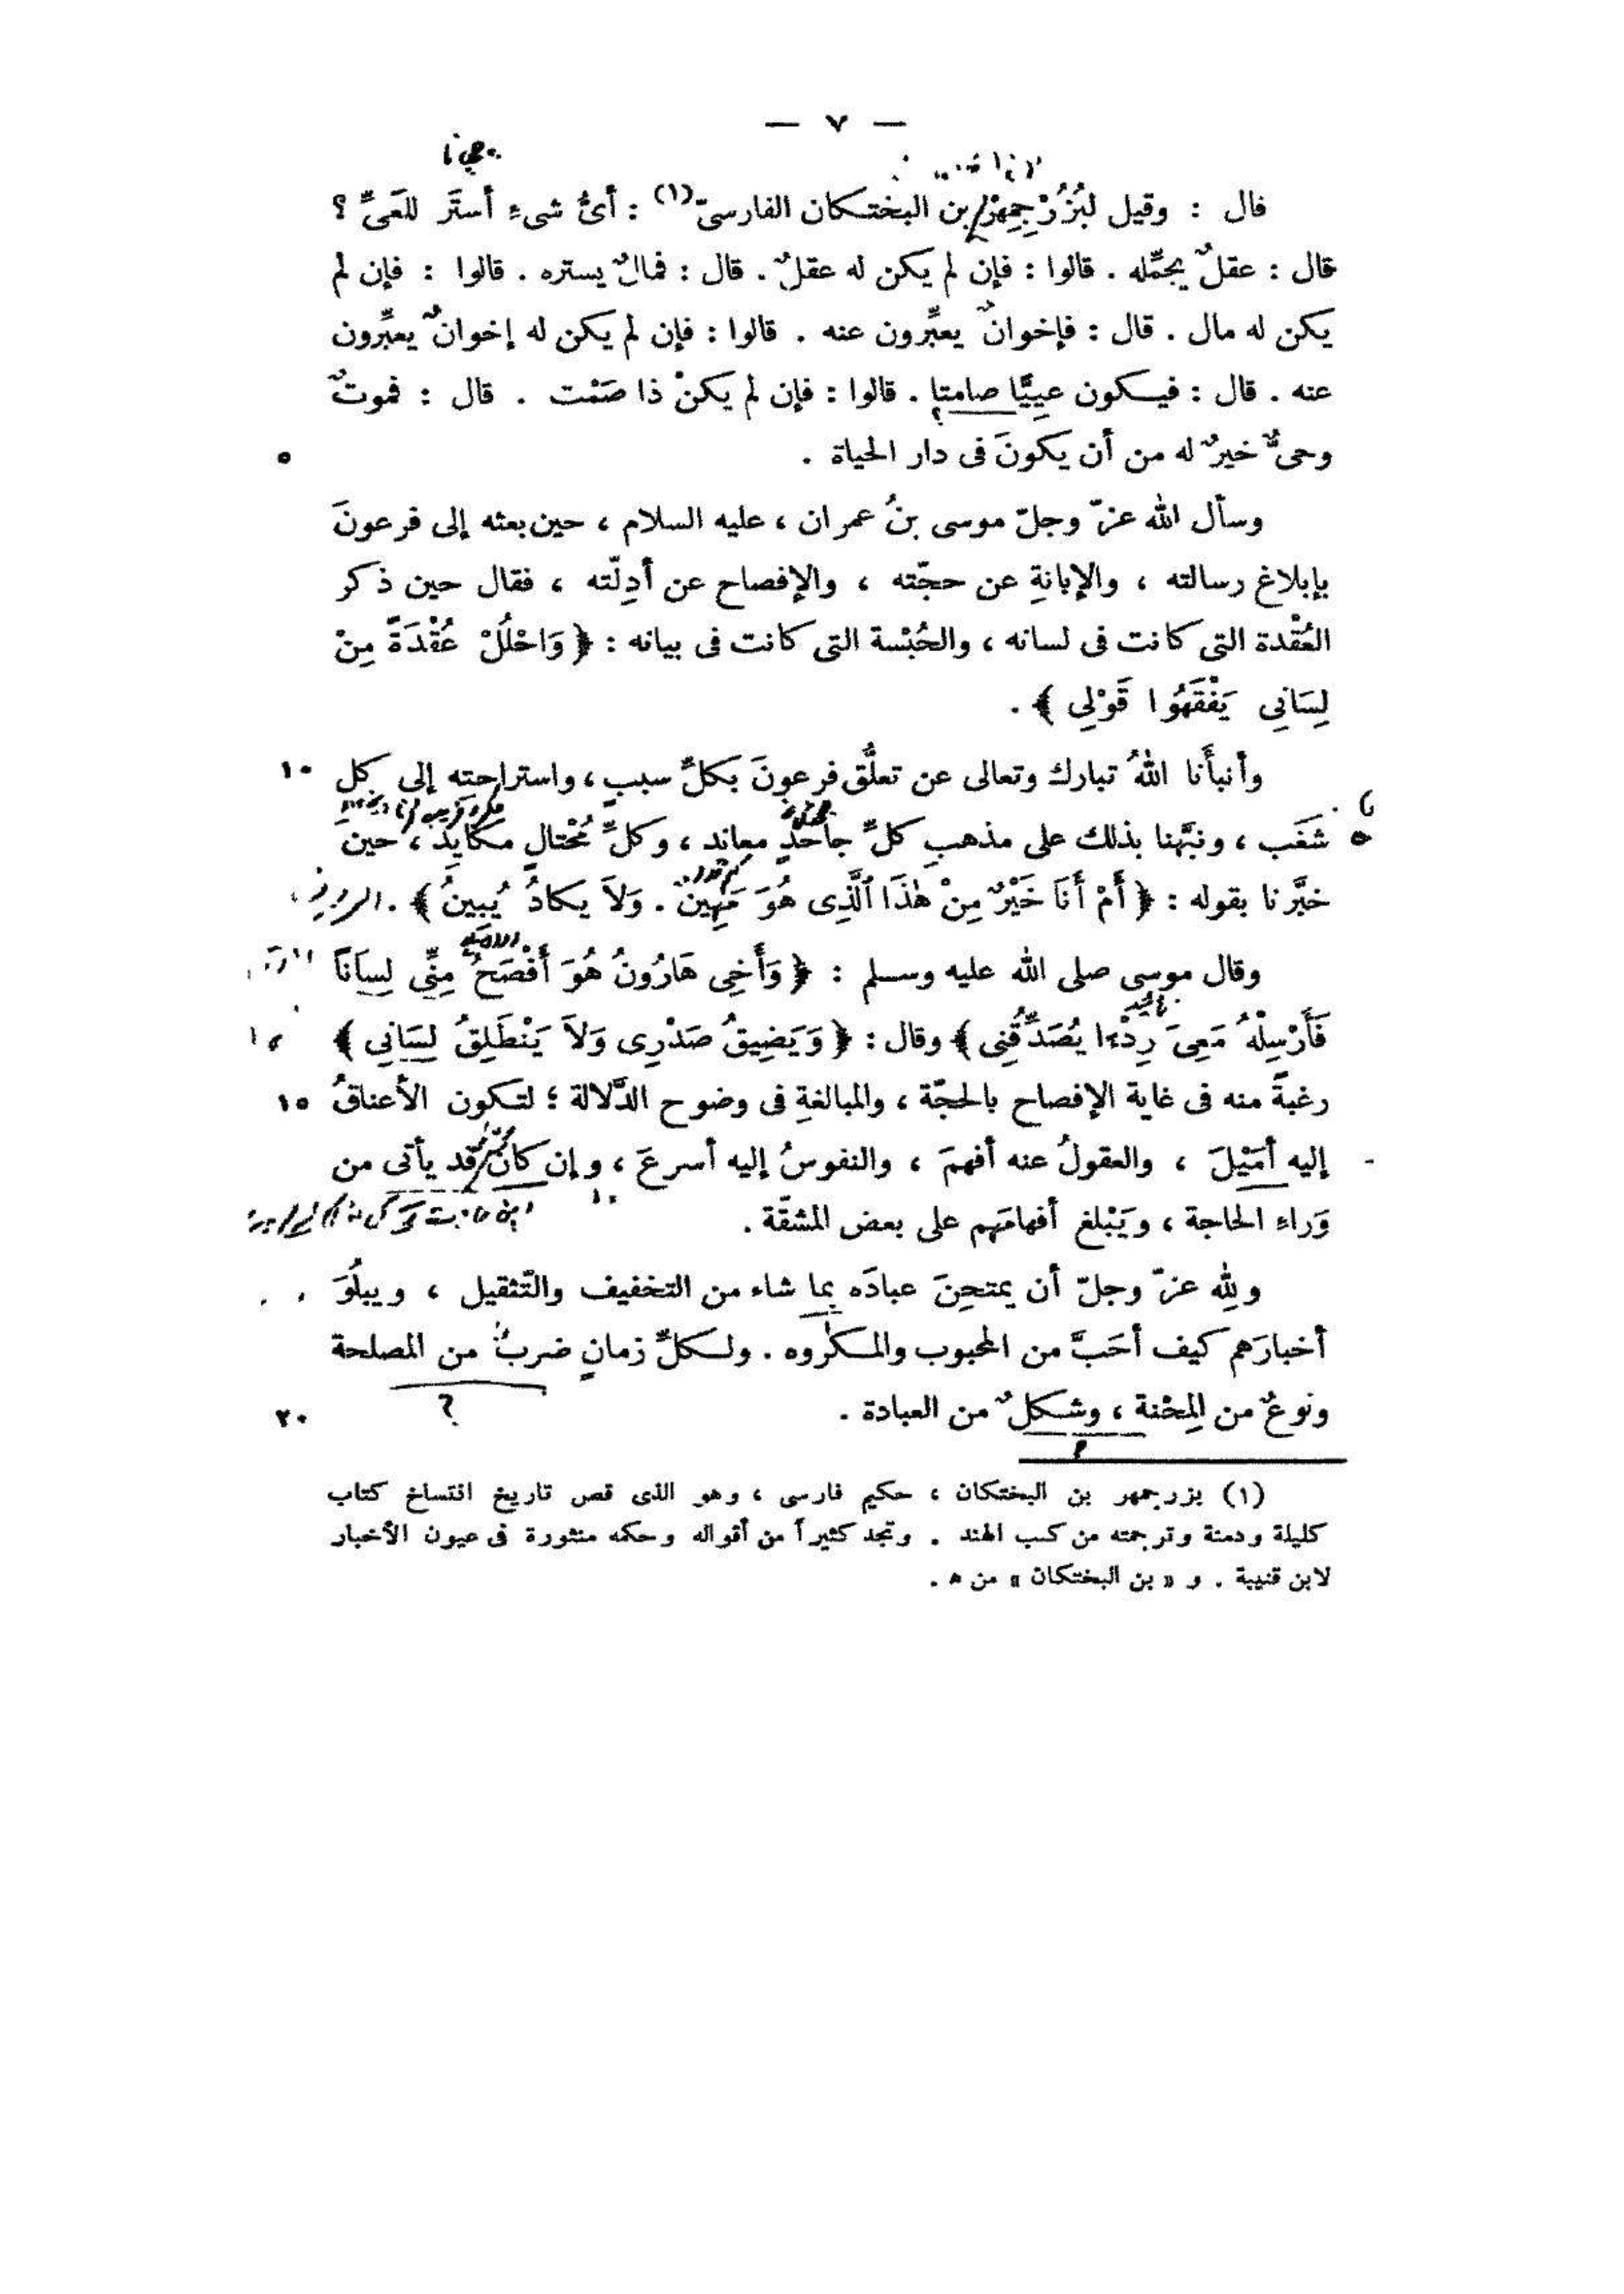 — ٧ —
قال : وقيل لبُزُرْجِمِهْر بن البختكان الفارسىّ(١) : أىُّ شىءٍ أستَر للعَىِّ ؟
قال : عقلٌ يجمِّله . قالوا : فإن لم يكن له عقلٌ . قال : فمالٌ يستره . قالوا : فإن لم
يكن له مال . قال : فإخوانٌ يعبِّرون عنه . قالوا : فإن لم يكن له إخوانٌ يعبِّرون
عنه . قال : فيكون عيِيًّا صامتا . قالوا : فإن لم يكنْ ذا صَمْت . قال : فموتٌ
وحىٌّ خيرٌ له من أن يكونَ فى دار الحياة . ٥
وسأل الله عزّ وجلّ موسى بنُ عمران ، عليه السلام ، حين بعثه إلى فرعونَ
بإبلاغ رسالته ، والإبانةِ عن حجّته ، والإفصاح عن أدِلّته ، فقال حين ذكر
العُقْدة التى كانت فى لسانه ، والحُبْسة التى كانت فى بيانه : ﴿ وَاحْلُلْ عُقْدَةً مِنْ
لِسَانِى يَفْقَهُوا قَوْلِى ﴾ .
وأنبأَنا اللهُ تبارك وتعالى عن تعلُّق فرعونَ بكلِّ سببٍ ، واستراحتِه إلى كل ١٠
شَغَب ، ونبَّهنا بذلك على مذهبِ كلِّ جاحدٍ معاند ، وكلِّ مُحْتالٍ مكايِد ، حين
خبَّرنا بقوله : ﴿ أَمْ أَنَا خَيْرٌ مِنْ هٰذَا ٱلَّذِى هُوَ مَهِينٌ . وَلاَ يكادُ يُبِينُ ﴾ .
وقال موسى صلى الله عليه وسلم : ﴿ وَأَخِى هَارُونُ هُوَ أَفْصَحُ مِنِّى لِسَانًا
فَأَرْسِلْهُ مَعِىَ رِدْءًا يُصَدِّقُنِى ﴾ وقال : ﴿ وَيَضِيقُ صَدْرِى وَلاَ يَنْطَلِقُ لِسَانِى ﴾
رغبةً منه فى غاية الإفصاح بالحجّة ، والمبالغةِ فى وضوح الدَّلالة ؛ لتكون الأعناقُ ١٥
إليه أمَيْلَ ، والعقولُ عنه أفهمَ ، والنفوسُ إليه أسرعَ ، وإن كان قد يأتى من
وَراءِ الحاجة ، ويَبْلغ أفهامَهم على بعض المشقّة .
ولله عزّ وجلّ أن يمتحِنَ عبادَه بما شاء من التخفيف والتّثقيل ، ويبلُوَ
أخبارَهم كيف أحَبَّ من المحبوب والمكروه . ولكلِّ زمانٍ ضربٌ من المصلحة
ونوعٌ من المِحْنة ، وشكلٌ من العبادة . ٢٠
(١) بزرجمهر بن البختكان ، حكيم فارسى ، وهو الذى قص تاريخ انتساخ كتاب
كليلة ودمنة وترجمته من كتب الهند . وتجد كثيراً من أقواله وحكمه منثورة فى عيون الأخبار
لابن قتيبة . و « بن البختكان » من ه .